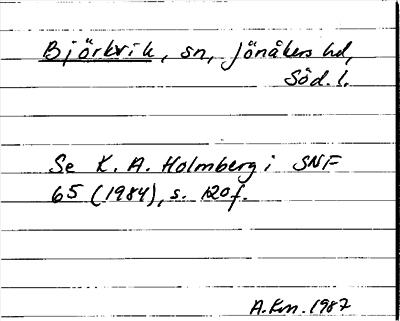 Björkvik, sn, Jönåkers hd,
Söd. l.
Se K. A. Holmberg i SNF
65 (1984), s. 120 f.
A.Km. 1987